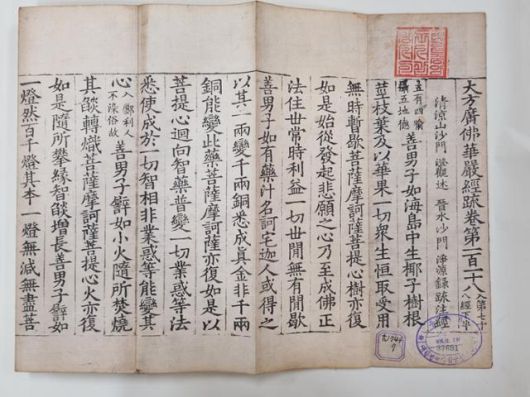 大方廣佛華嚴經疏卷第一百一十八 入第七十八經下半
清涼山沙門 澄觀述 晉水沙門 淨源錄疏注經
五有四喻攝五地德 善男子如海島中生椰子樹根
莖枝葉及以華果一切衆生恒取受用
無時暫歇菩薩摩訶薩菩提心樹亦復
如是始從發起悲願之心乃至成佛正
法住世常時利益一切世間無有間歇
善男子如有藥汁名訶宅迦人或得之
以其一兩變千兩銅悉成真金非千兩
銅能變此藥菩薩摩訶薩亦復如是以
菩提心迴向智藥普變一切業惑等法
悉使成於一切智相非業惑等能變其
心 入鄽利人不染俗故 善男子譬如小火隨所焚燒
其焰轉熾菩薩摩訶薩菩提心火亦復
如是隨所攀緣智焰增長善男子譬如
一燈然百千燈其本一燈無減無盡菩